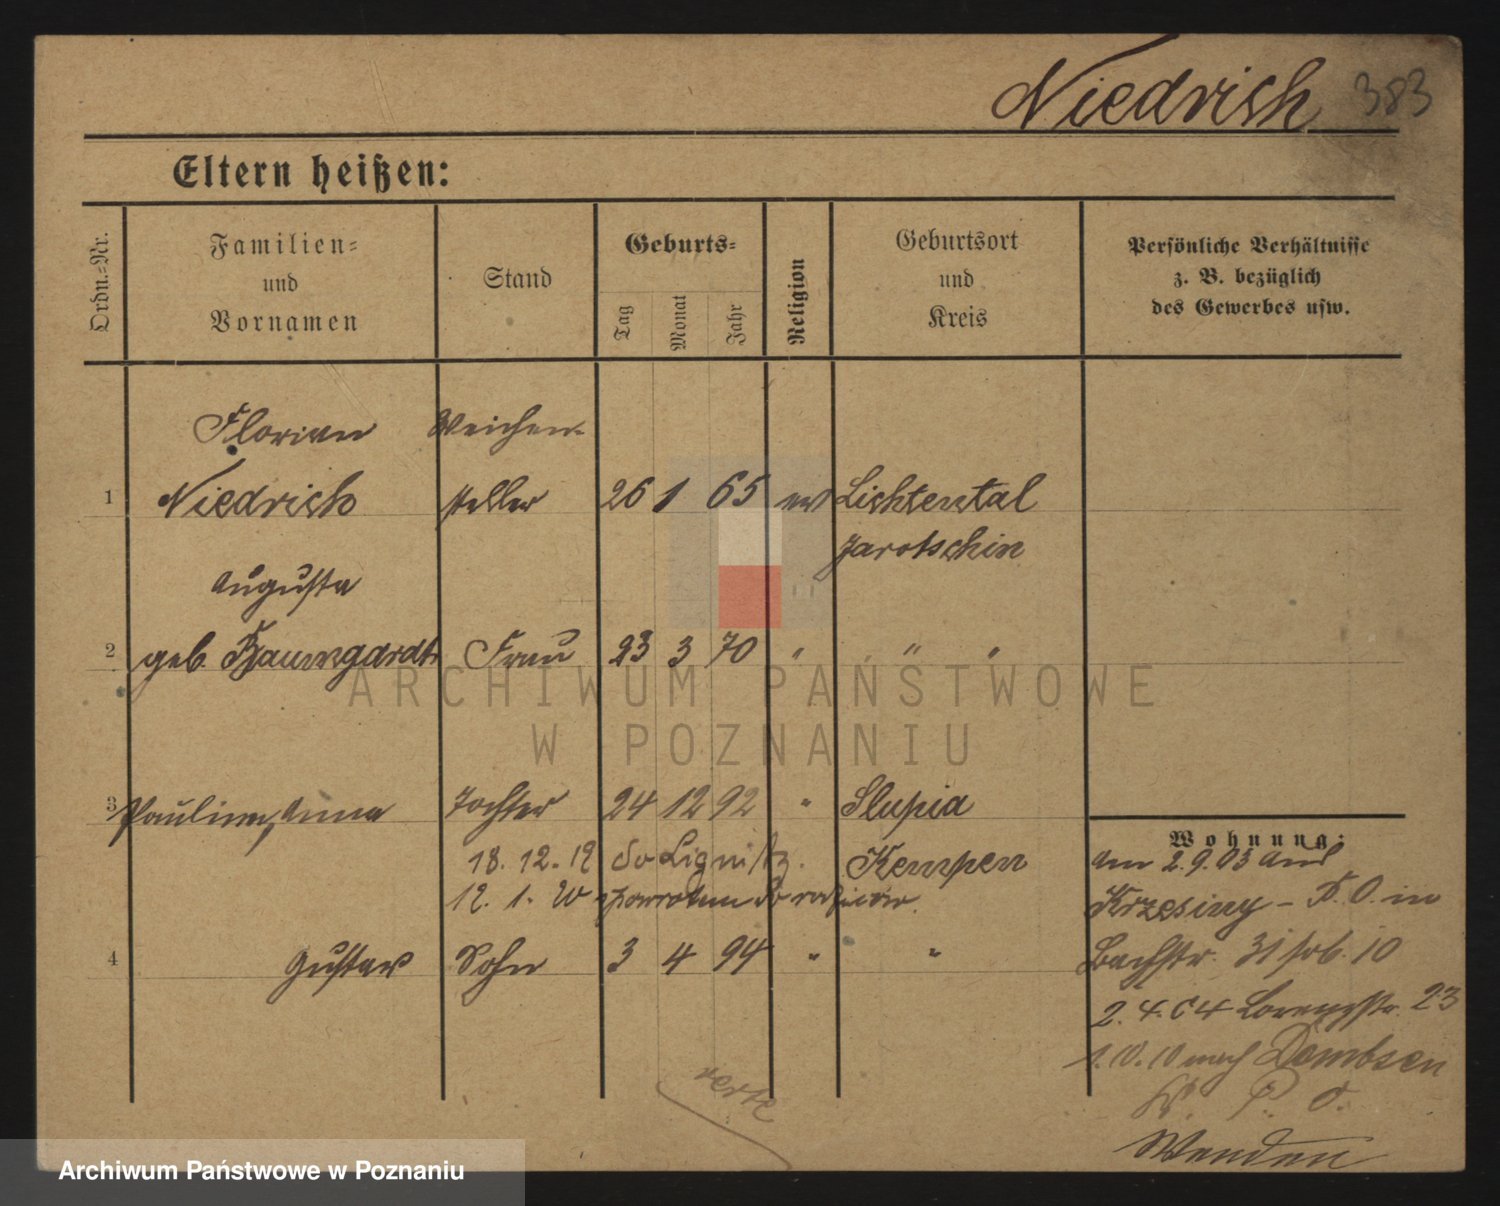 Niedrich 383
Eltern heißen:
Ordn.-Nr.
Familien-
und
Vornamen
Stand
Geburts-
Tag
Monat
Jahr
Religion
Geburtsort
und
Kreis
Persönliche Verhältnisse
z. B. bezüglich
des Gewerbes usw.
Florian Weichen-
1 Niedrich steller 26 1 65 ev Lichtental
Jarotschin
Augusta
2 geb. Baumgardt Frau 23 3 70 " " "
ARCHIWUM PAŃSTWOWE
W POZNANIU
3 Pauline, Anna Tochter 24 12 92 " Slupia
Wohnung:
18. 12. 19 Lignitz. Kempen
am 2.9.03 aus
12. 1. 20
Krzesiny - K. O. in
4 Gustav Sohn 3 4 94 " "
Bachstr. 31 10
2. 4. 04 Lorenzstr. 23
1. 10. 10 nach Dombsen
verte
K. P. O.
Wenden
Archiwum Państwowe w Poznaniu